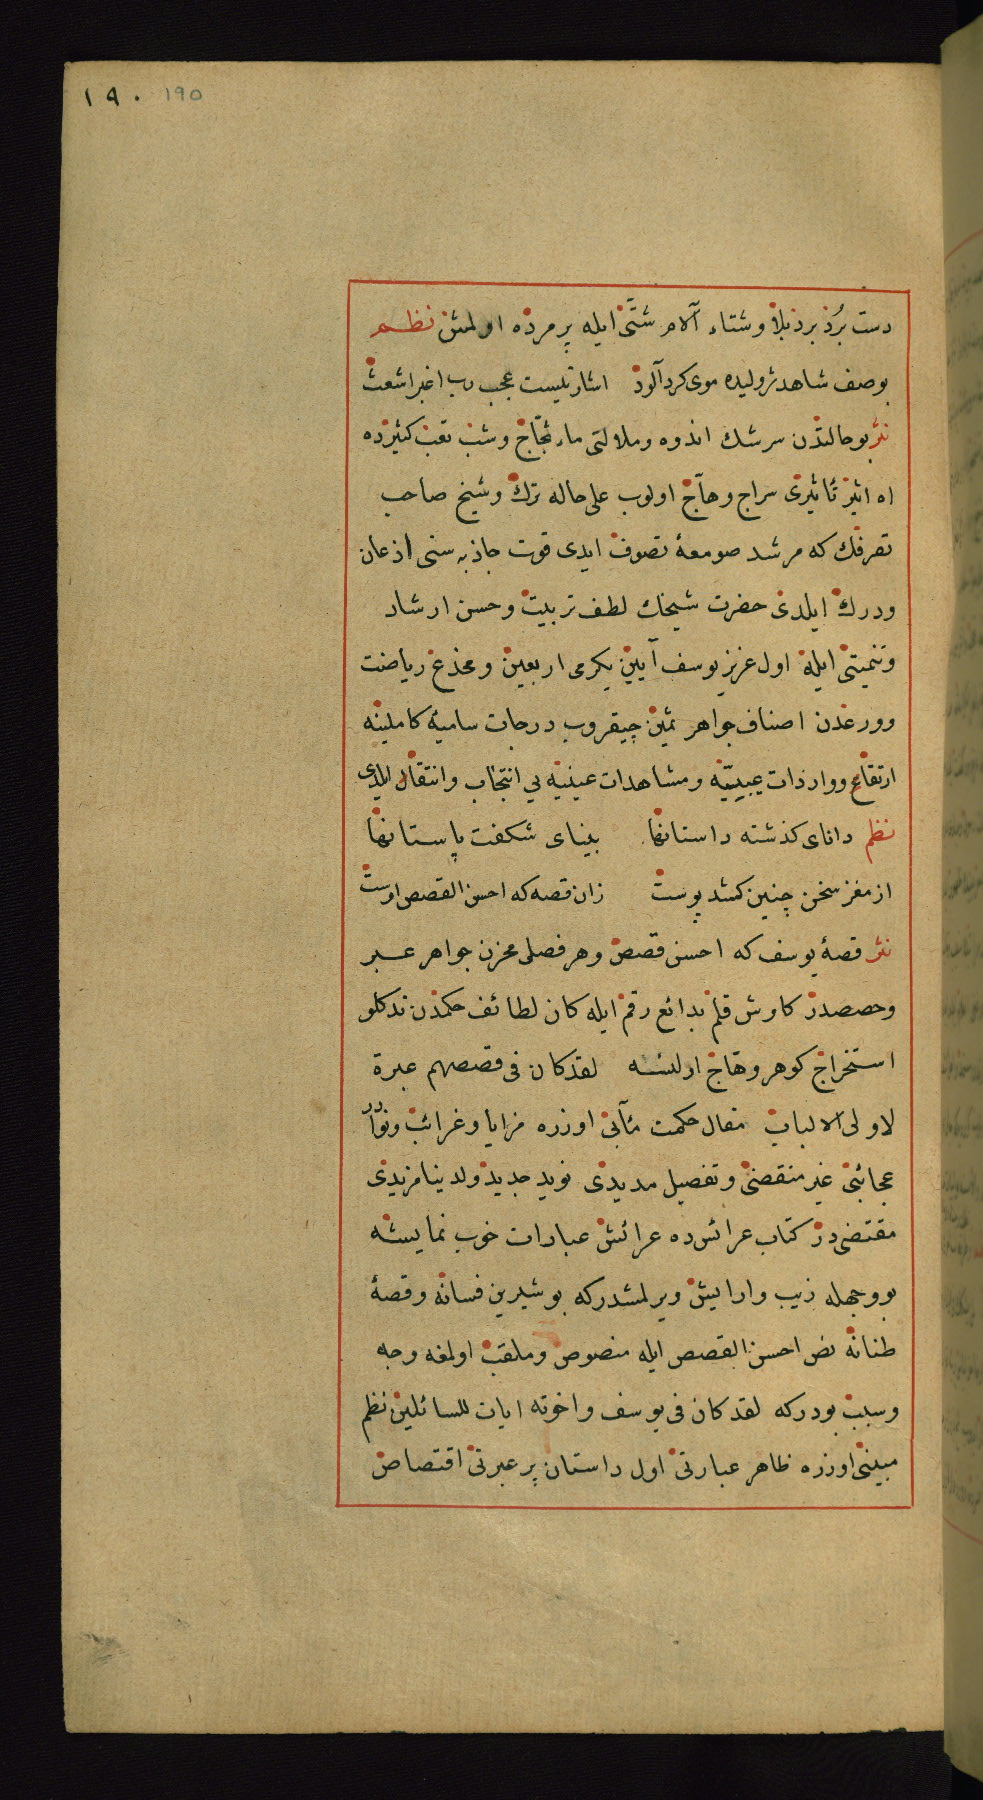 ١٩٠ ١٩٥
دست بُرْدِ برد بلا و شتاء آلام شتّى ايله پر مرده اولمش نظم
بوصف شاهد ژوليده موى كرد آلود اشارتيست عجب رب اغبر اشعث
نثر بو حالتدن سرشك اندوه و ملالتى ماء ثجّاج و شب تعب كثيرده
اه اثير تأثيرى سراج وهّاج اولوب على حاله ترك و شيخ صاحب
تصرفك كه مرشد صومعهٔ تصوف ايدى قوت جاذبه سنى اذعان
ودرك ايلدى حضرت شيخك لطف تربيت وحسن ارشاد
وتنميتى ايله اول عزيز يوسف آيين يكرمى اربعين ومخدع رياضت
وورعدن اصناف جواهر ثمين چيقروب درجات ساميهٔ كاملينه
ارتقاع وواردات غيبيّه ومشاهدات عينيّه يى انتجاب وانتقال ايلدى
نظم داناى كذشته داستانها بيناى شكفت پاستانها
از مغز سخن چنين كشد پوست زان قصه كه احسن القصص اوست
نثر قصهٔ يوسف كه احسن قصص وهر فصلى مخزن جواهر عبر
وحصصدر كاوش قلم بدائع رقم ايله كان لطائف حكمدن نه دكلو
استخراج كوهر وهّاج اولنسه لقد كان فى قصصهم عبرة
لاولى الالباب مقال حكمت مآبى اوزره مزايا وغرائب ونوادر
عجائبى غير منقضى وتفصيل مديدى نويد جديد ولدينا مزيدى
مقتضى در كتاب عرائس ده عرائش عبارات خوب نمايشه
بو وجهله زيب وارايش ويرلمشدركه بو شيرين فسانه وقصهٔ
طنانه نص احسن القصص ايله منصوص وملقب اولمغه وجه
وسبب بودركه لقد كان فى يوسف واخوته ايات للسائلين نظم
مبينى اوزره ظاهر عبارتى اول داستان پر عبرتى اقتصاص